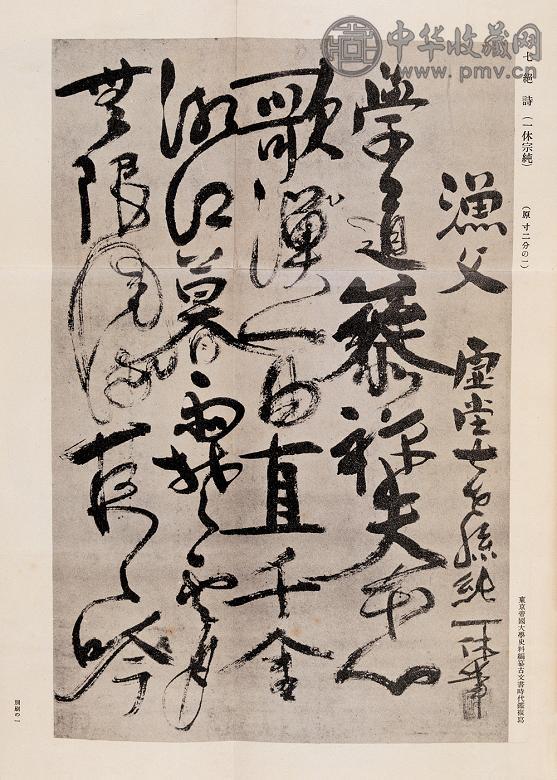 中华收藏网
www.pmv.cn
七絶詩（一休宗純）（原寸二分の一）
漁父 虚堂七世孫純一休筆
学道参禅失本心
歌漁一曲直千金
湘江暮雨楚雲月
無限風流夜々吟
東京帝國大學史料編纂古文書時代鑑複寫
別刷の一